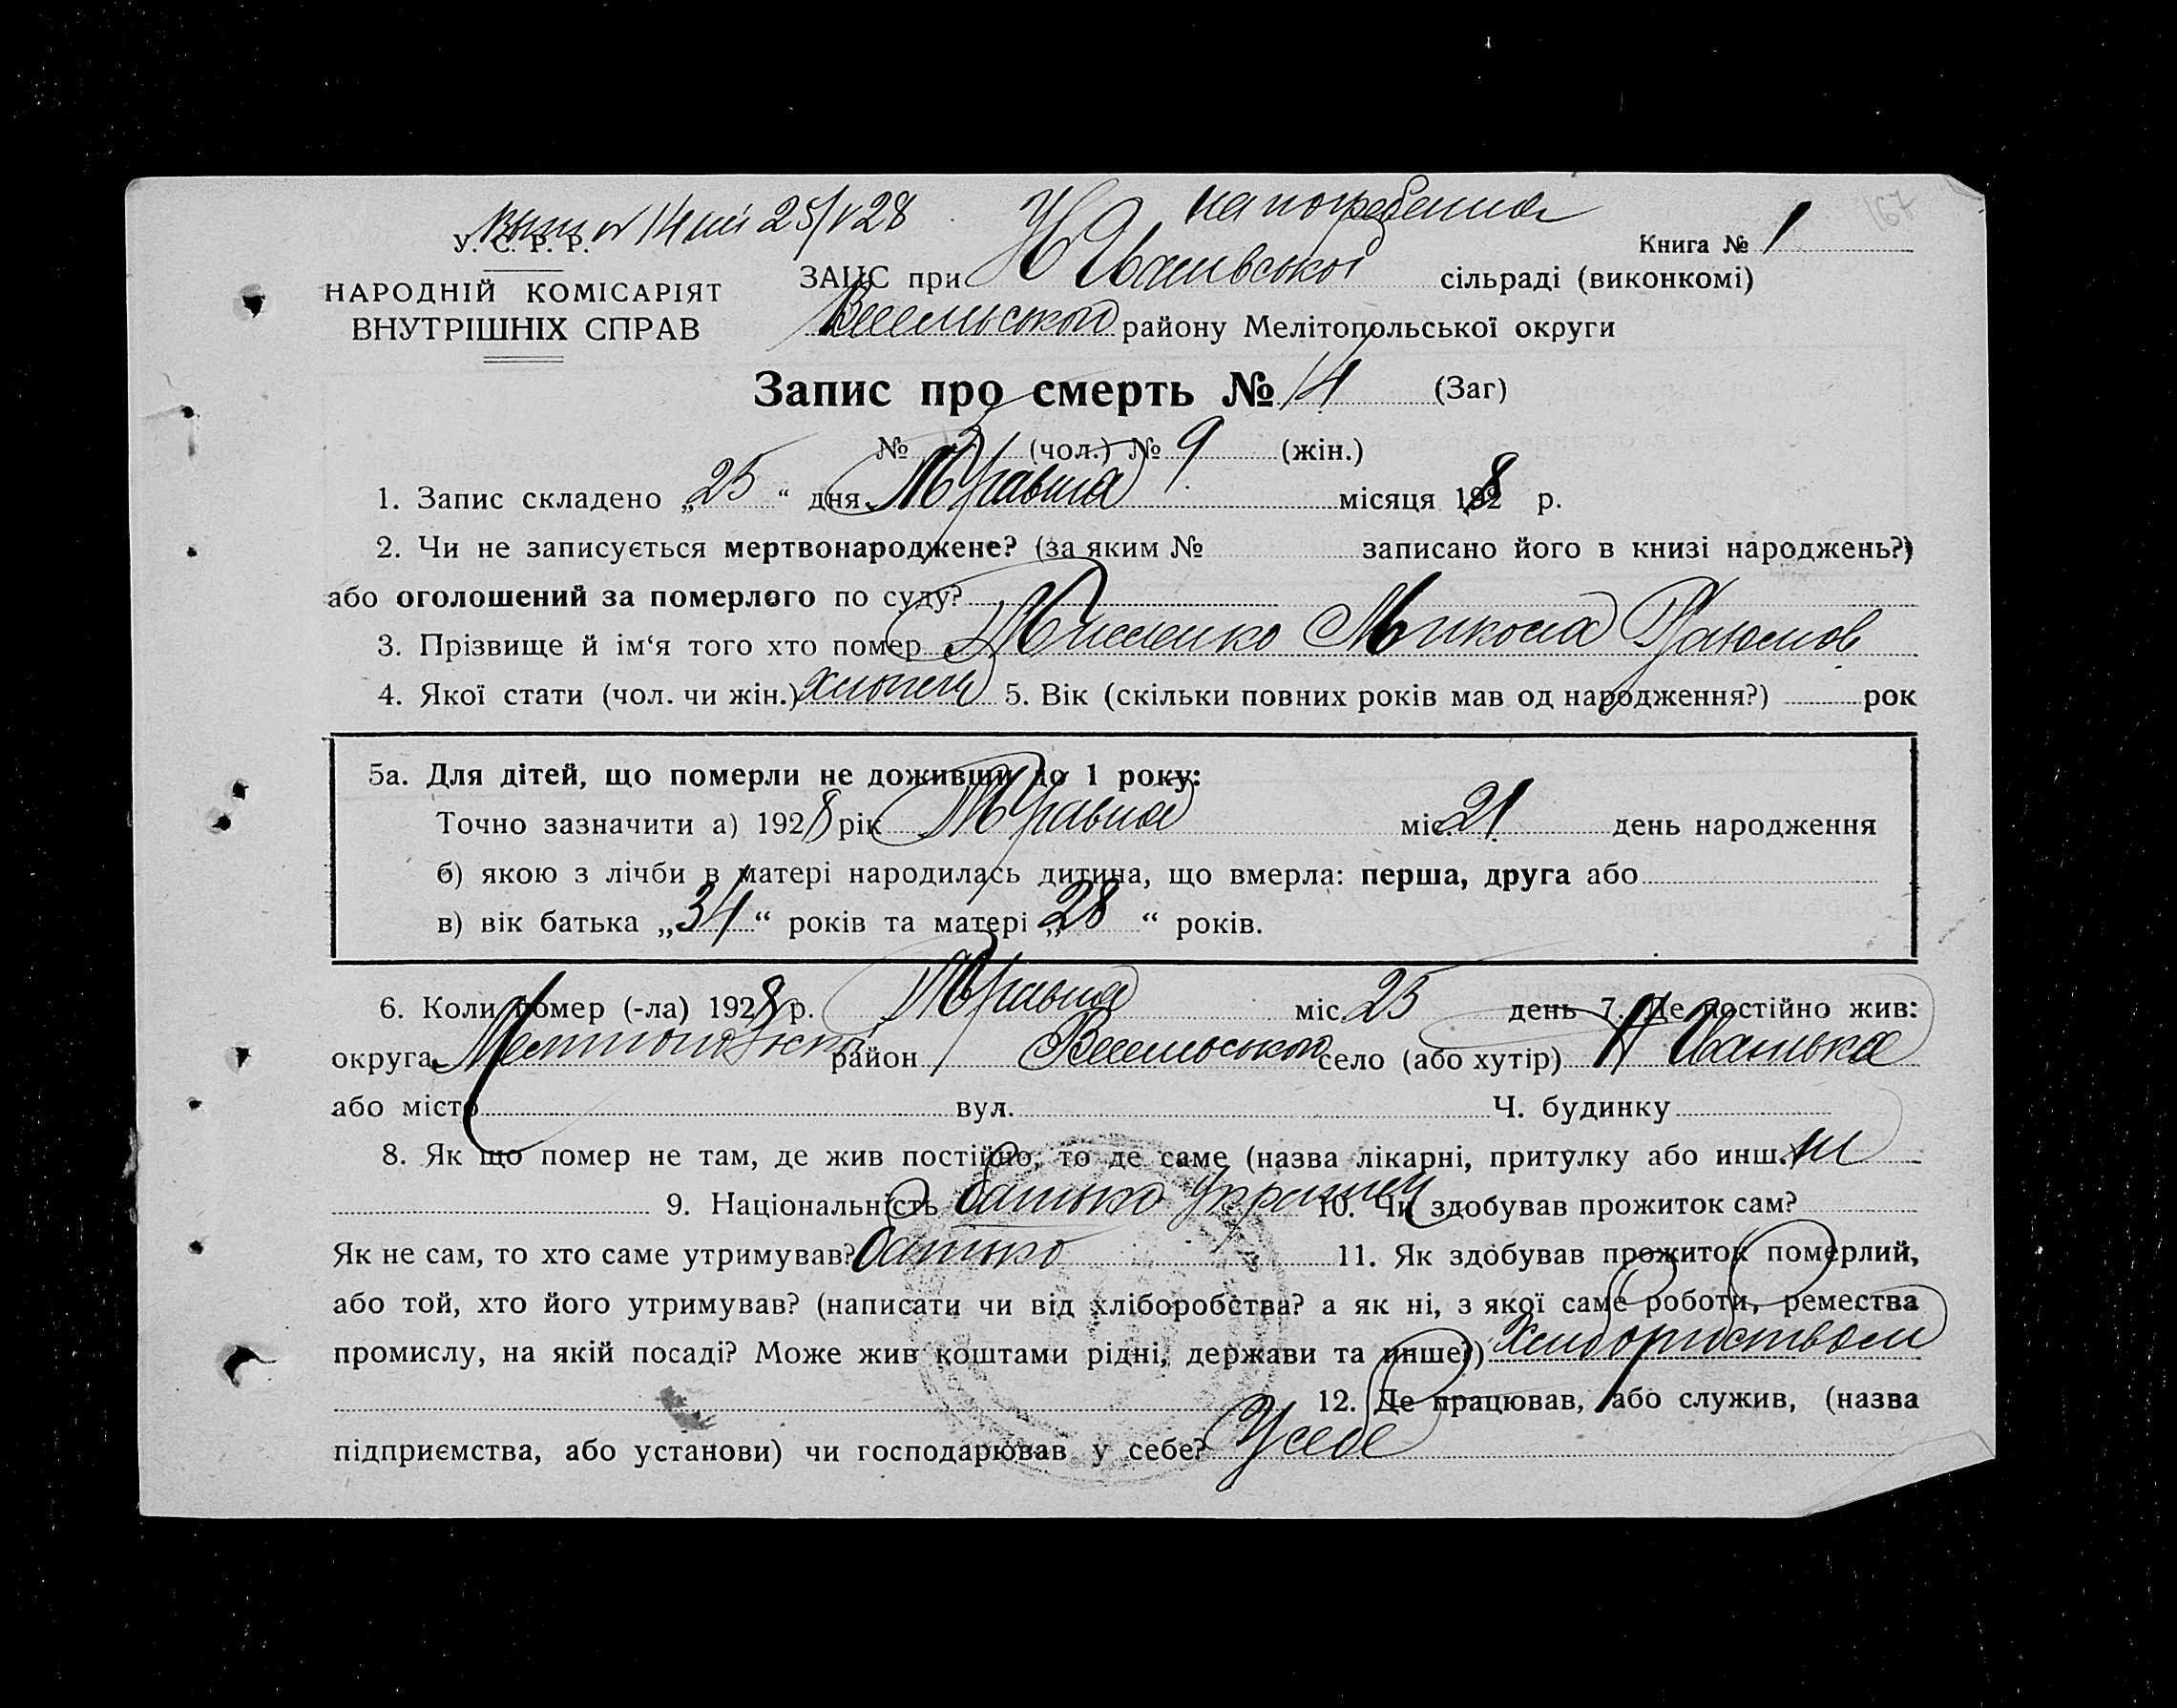 на погребення
25/V 28
У. С. Р. Р.
Книга № 1
167
НАРОДНІЙ КОМІСАРІЯТ
ВНУТРІШНІХ СПРАВ
ЗАЦС при Н Іванівської сільраді (виконкомі)
Весельської району Мелітопольської округи
Запис про смерть № 14 (Заг)
№ (чол.) № 9 (жін.)
1. Запис складено „25“ дня Травня місяця 1928 р.
2. Чи не записується мертвонароджене? (за яким № записано його в книзі народжень?)
або оголошений за померлого по суду?
3. Прізвище й ім‘я того хто помер Тищенко Микола
4. Якої стати (чол. чи жін.) хлопець 5. Вік (скільки повних років мав од народження?) рок
5а. Для дітей, що померли не доживши до 1 року:
Точно зазначити а) 1928 рік Травня міс. 21 день народження
б) якою з лічби в матері народилась дитина, що вмерла: перша, друга або
в) вік батька „34“ років та матері „28“ років.
6. Коли помер (-ла) 1928 р. Травня міс 25 день 7. Де постійно жив:
округа район Весельської село (або хутір) Н Іванівка
або місто вул. Ч. будинку
8. Як що помер не там, де жив постійно, то де саме (назва лікарні, притулку або инш.
9. Національність батько Українец 10. Чи здобував прожиток сам?
Як не сам, то хто саме утримував? батько 11. Як здобував прожиток померлий,
або той, хто його утримував? (написати чи від хліборобства? а як ні, з якої саме роботи, ремества
промислу, на якій посаді? Може жив коштами рідні, держави та инше)
12. Де працював, або служив, (назва
підприємства, або установи) чи господарював у себе? У себе